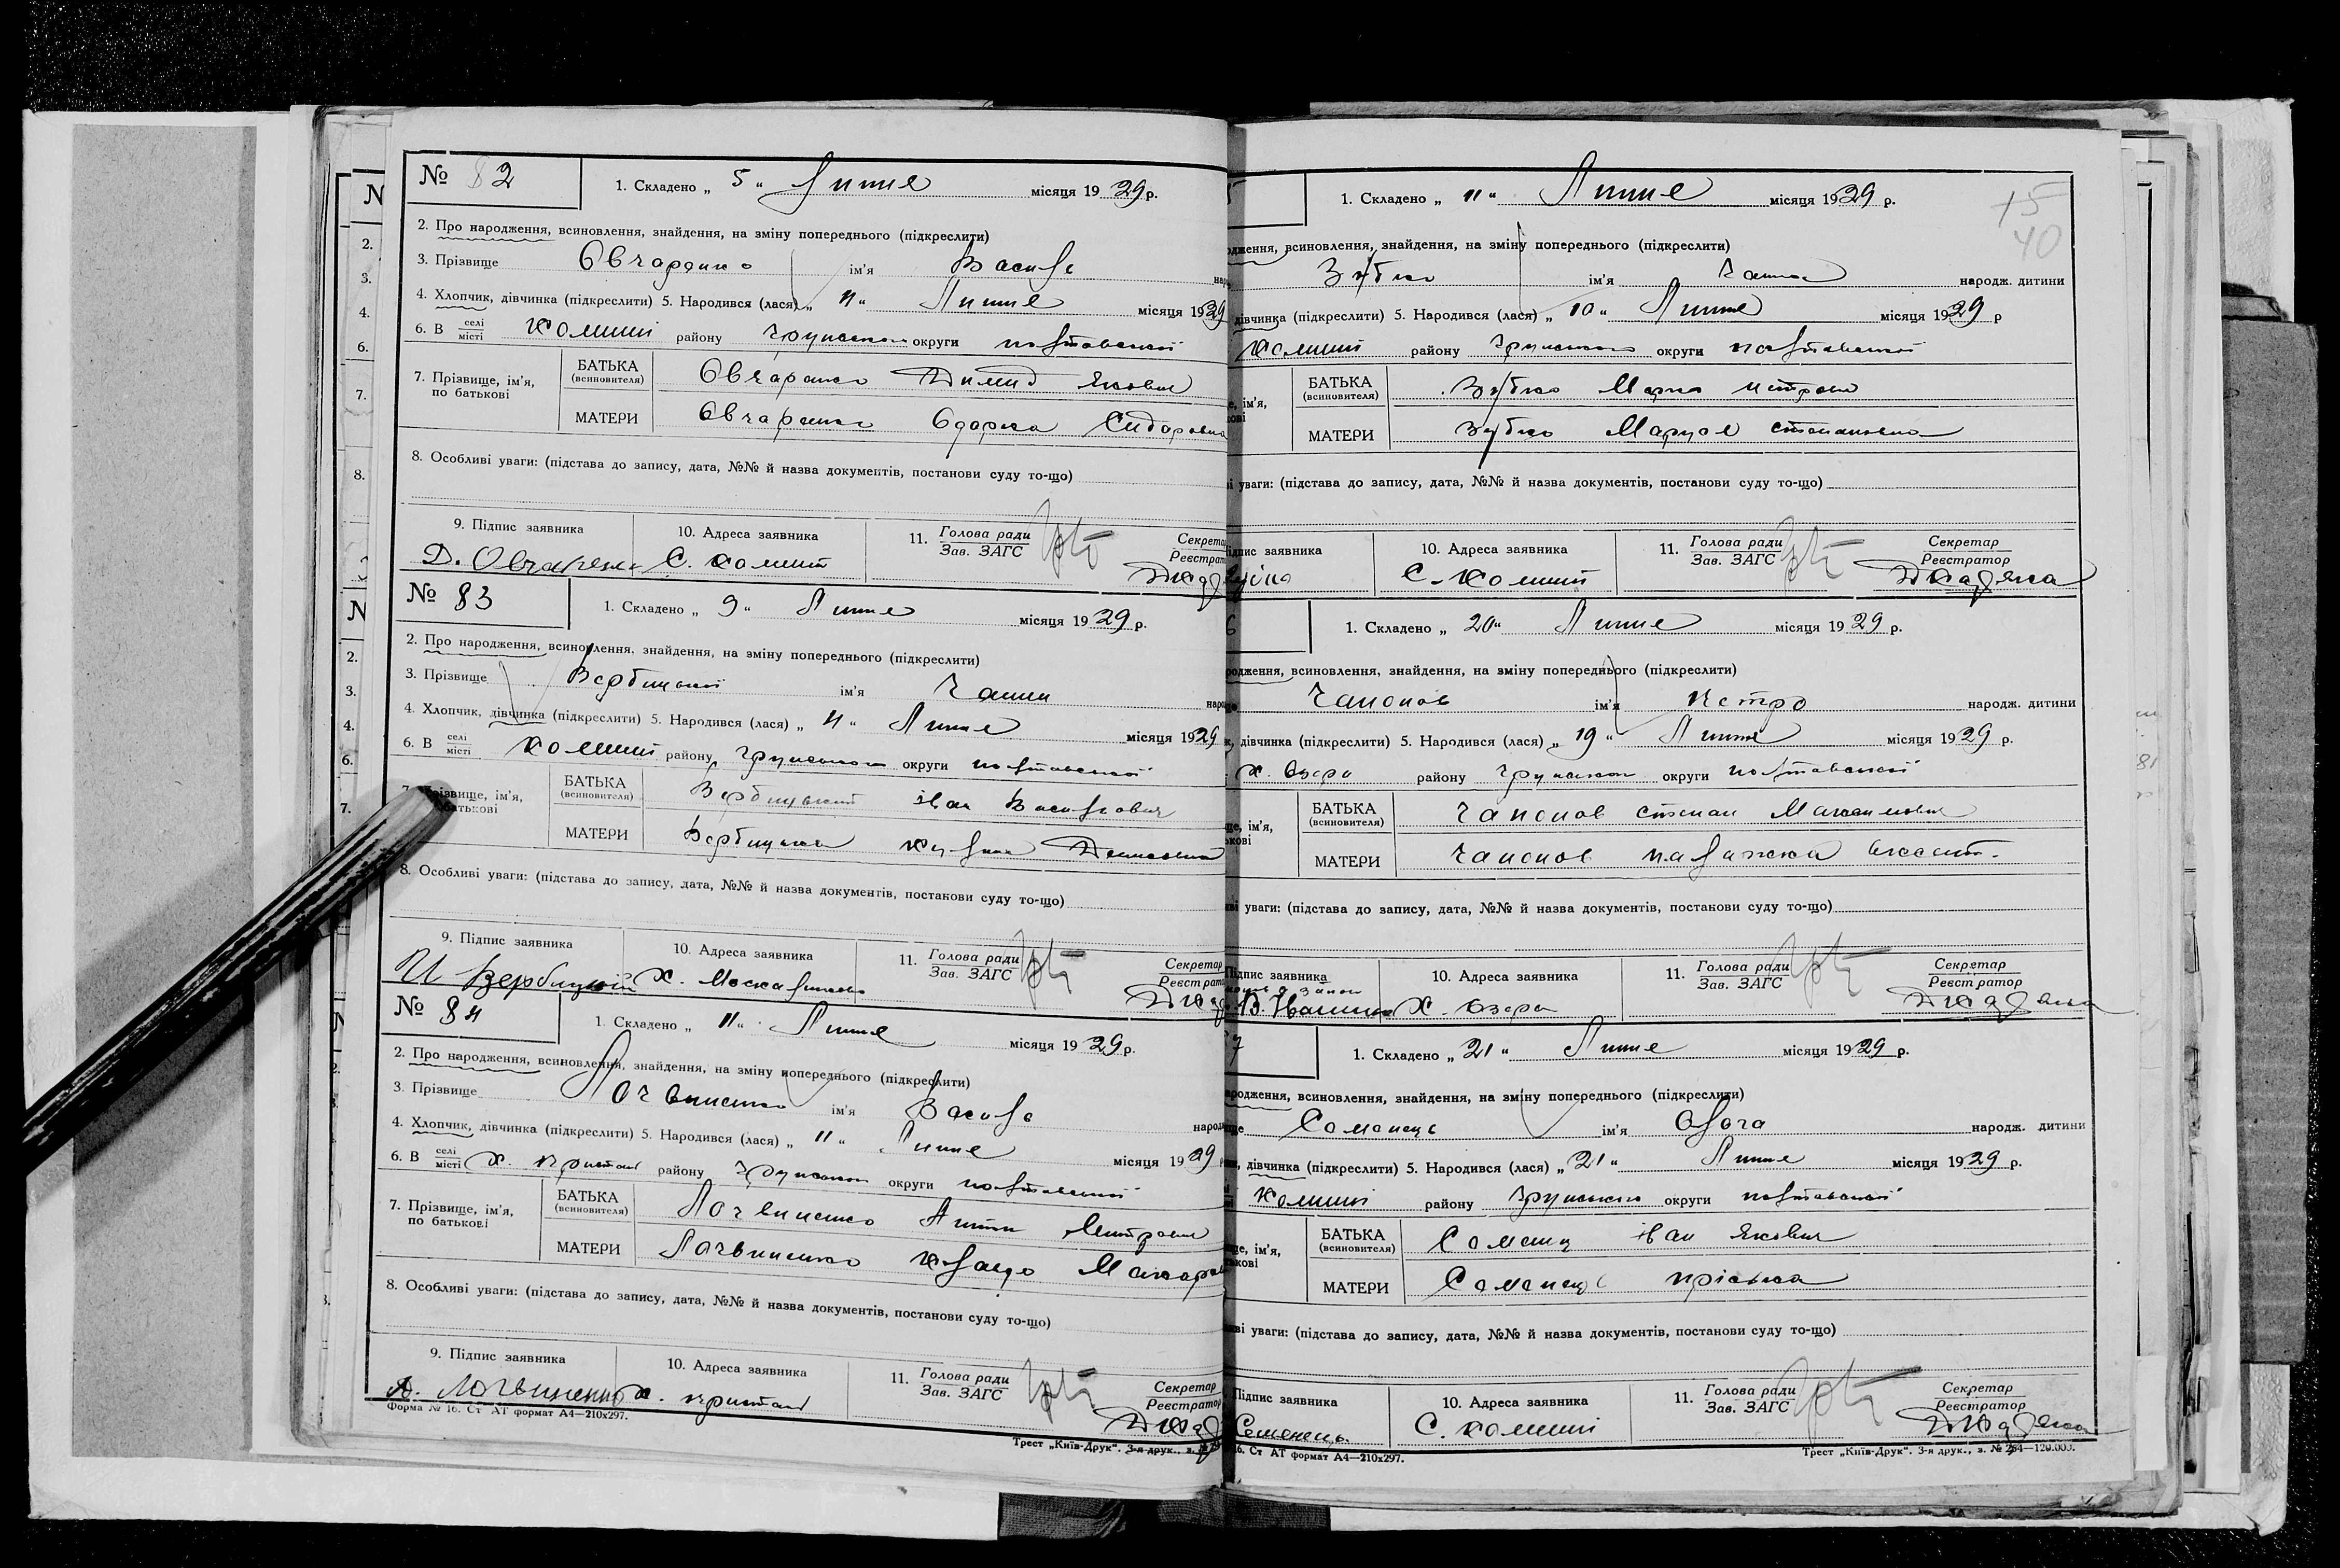 № 82
1. Складено „ 5 “ Липня місяця 1929 р.
2. Про народження, всиновлення, знайдення, на зміну попереднього (підкреслити)
3. Прізвище Овчаренко ім'я Василь
4. Хлопчик, дівчинка (підкреслити) 5. Народився (лася) „ 4 “ Липня місяця 1929
6. В селі місті Комиші району Грунського округи полтавської
7. Прізвище, ім'я, по батькові
БАТЬКА (всиновителя) Овчаренко Демид Якович
МАТЕРИ Овчаренко Одарка Сидоровна
8. Особливі уваги: (підстава до запису, дата, №№ й назва документів, постанови суду то-що)
9. Підпис заявника 10. Адреса заявника 11. Голова ради Зав. ЗАГС Секретар Реєстратор
Д. Овчаренко С. Комиші
№ 83
1. Складено „ 9 “ Липня місяця 1929 р.
2. Про народження, всиновлення, знайдення, на зміну попереднього (підкреслити)
3. Прізвище Вербицької ім'я Ганни
4. Хлопчик, дівчинка (підкреслити) 5. Народився (лася) „ 4 “ Липня місяця 1929
6. В селі місті Комиші району Грунського округи полтавської
7. Прізвище, ім'я, по батькові
БАТЬКА (всиновителя) Вербицький Іван Васильович
МАТЕРИ Вербицька Денисовна
8. Особливі уваги: (підстава до запису, дата, №№ й назва документів, постакови суду то-що)
9. Підпис заявника 10. Адреса заявника 11. Голова ради Зав. ЗАГС Секретар Реєстратор
И Вербицкий Х.
№ 84
1. Складено „ 11 “ Липня місяця 1929 р.
2. Про народження, всиновлення, знайдення, на зміну попереднього (підкреслити)
3. Прізвище Логвиненко ім'я Василь
4. Хлопчик, дівчинка (підкреслити) 5. Народився (лася) „ 11 “ Липня місяця 1929 р
6. В селі місті Х. району Грунського округи полтавської
7. Прізвище, ім'я, по батькові
БАТЬКА (всиновителя) Логвиненко Антін Митрович
МАТЕРИ Логвиненко Макаров
8. Особливі уваги: (підстава до запису, дата, №№ й назва документів, постанови суду то-що)
9. Підпис заявника 10. Адреса заявника 11. Голова ради Зав. ЗАГС Секретар Реєстратор
А. Логвиненко Х.
Форма № 16. Ст АТ формат А4—210х297.
Трест „Київ-Друк“. 3-я друк., з. №
15
40
1. Складено „ 11 “ Липня місяця 1929 р.
одження, всиновлення, знайдення, на зміну попереднього (підкреслити)
Зубко ім'я Ганна народж. дитини
дівчинка (підкреслити) 5. Народився (лася) „ 10 “ Липня місяця 1929 р
Комиші району Грунського округи полтавської
БАТЬКА (всиновителя) Зубко Марко Петрович
МАТЕРИ Зубко Маруся Степановна
уваги: (підстава до запису, дата, №№ й назва документів, постанови суду то-що)
ідпис заявника 10. Адреса заявника 11. Голова ради Зав. ЗАГС Секретар Реєстратор
С. Комиші
6
1. Складено „ 20 “ Липня місяця 1929 р.
родження, всиновлення, знайдення, на зміну попереднього (підкреслити)
Гапонов ім'я Петро народж. дитини
дівчинка (підкреслити) 5. Народився (лася) „ 19 “ Липня місяця 1929 р.
х. Озера району Грунського округи полтавської
БАТЬКА (всиновителя) Гапонов Степан Максимович
МАТЕРИ Гапонов Палажка
уваги: (підстава до запису, дата, №№ й назва документів, постанови суду то-що)
Підпис заявника 10. Адреса заявника 11. Голова ради Зав. ЗАГС Секретар Реєстратор
Х. Озера
7
1. Складено „ 21 “ Липня місяця 1929 р.
родження, всиновлення, знайдення, на зміну попереднього (підкреслити)
Семенець ім'я Ольга народж. дитини
дівчинка (підкреслити) 5. Народився (лася) „ 21 “ Липня місяця 1929 р.
Комиші району Грунського округи полтавської
БАТЬКА (всиновителя) Семенец Іван Якович
МАТЕРИ Семенець Пріська
уваги: (підстава до запису, дата, №№ й назва документів, постанови суду то-що)
Підпис заявника 10. Адреса заявника 11. Голова ради Зав. ЗАГС Секретар Реєстратор
Семенець С. Комиші
16. Ст АТ формат А4—210х297.
Трест „Київ-Друк“. 3-я друк., з. № 264—120.000.